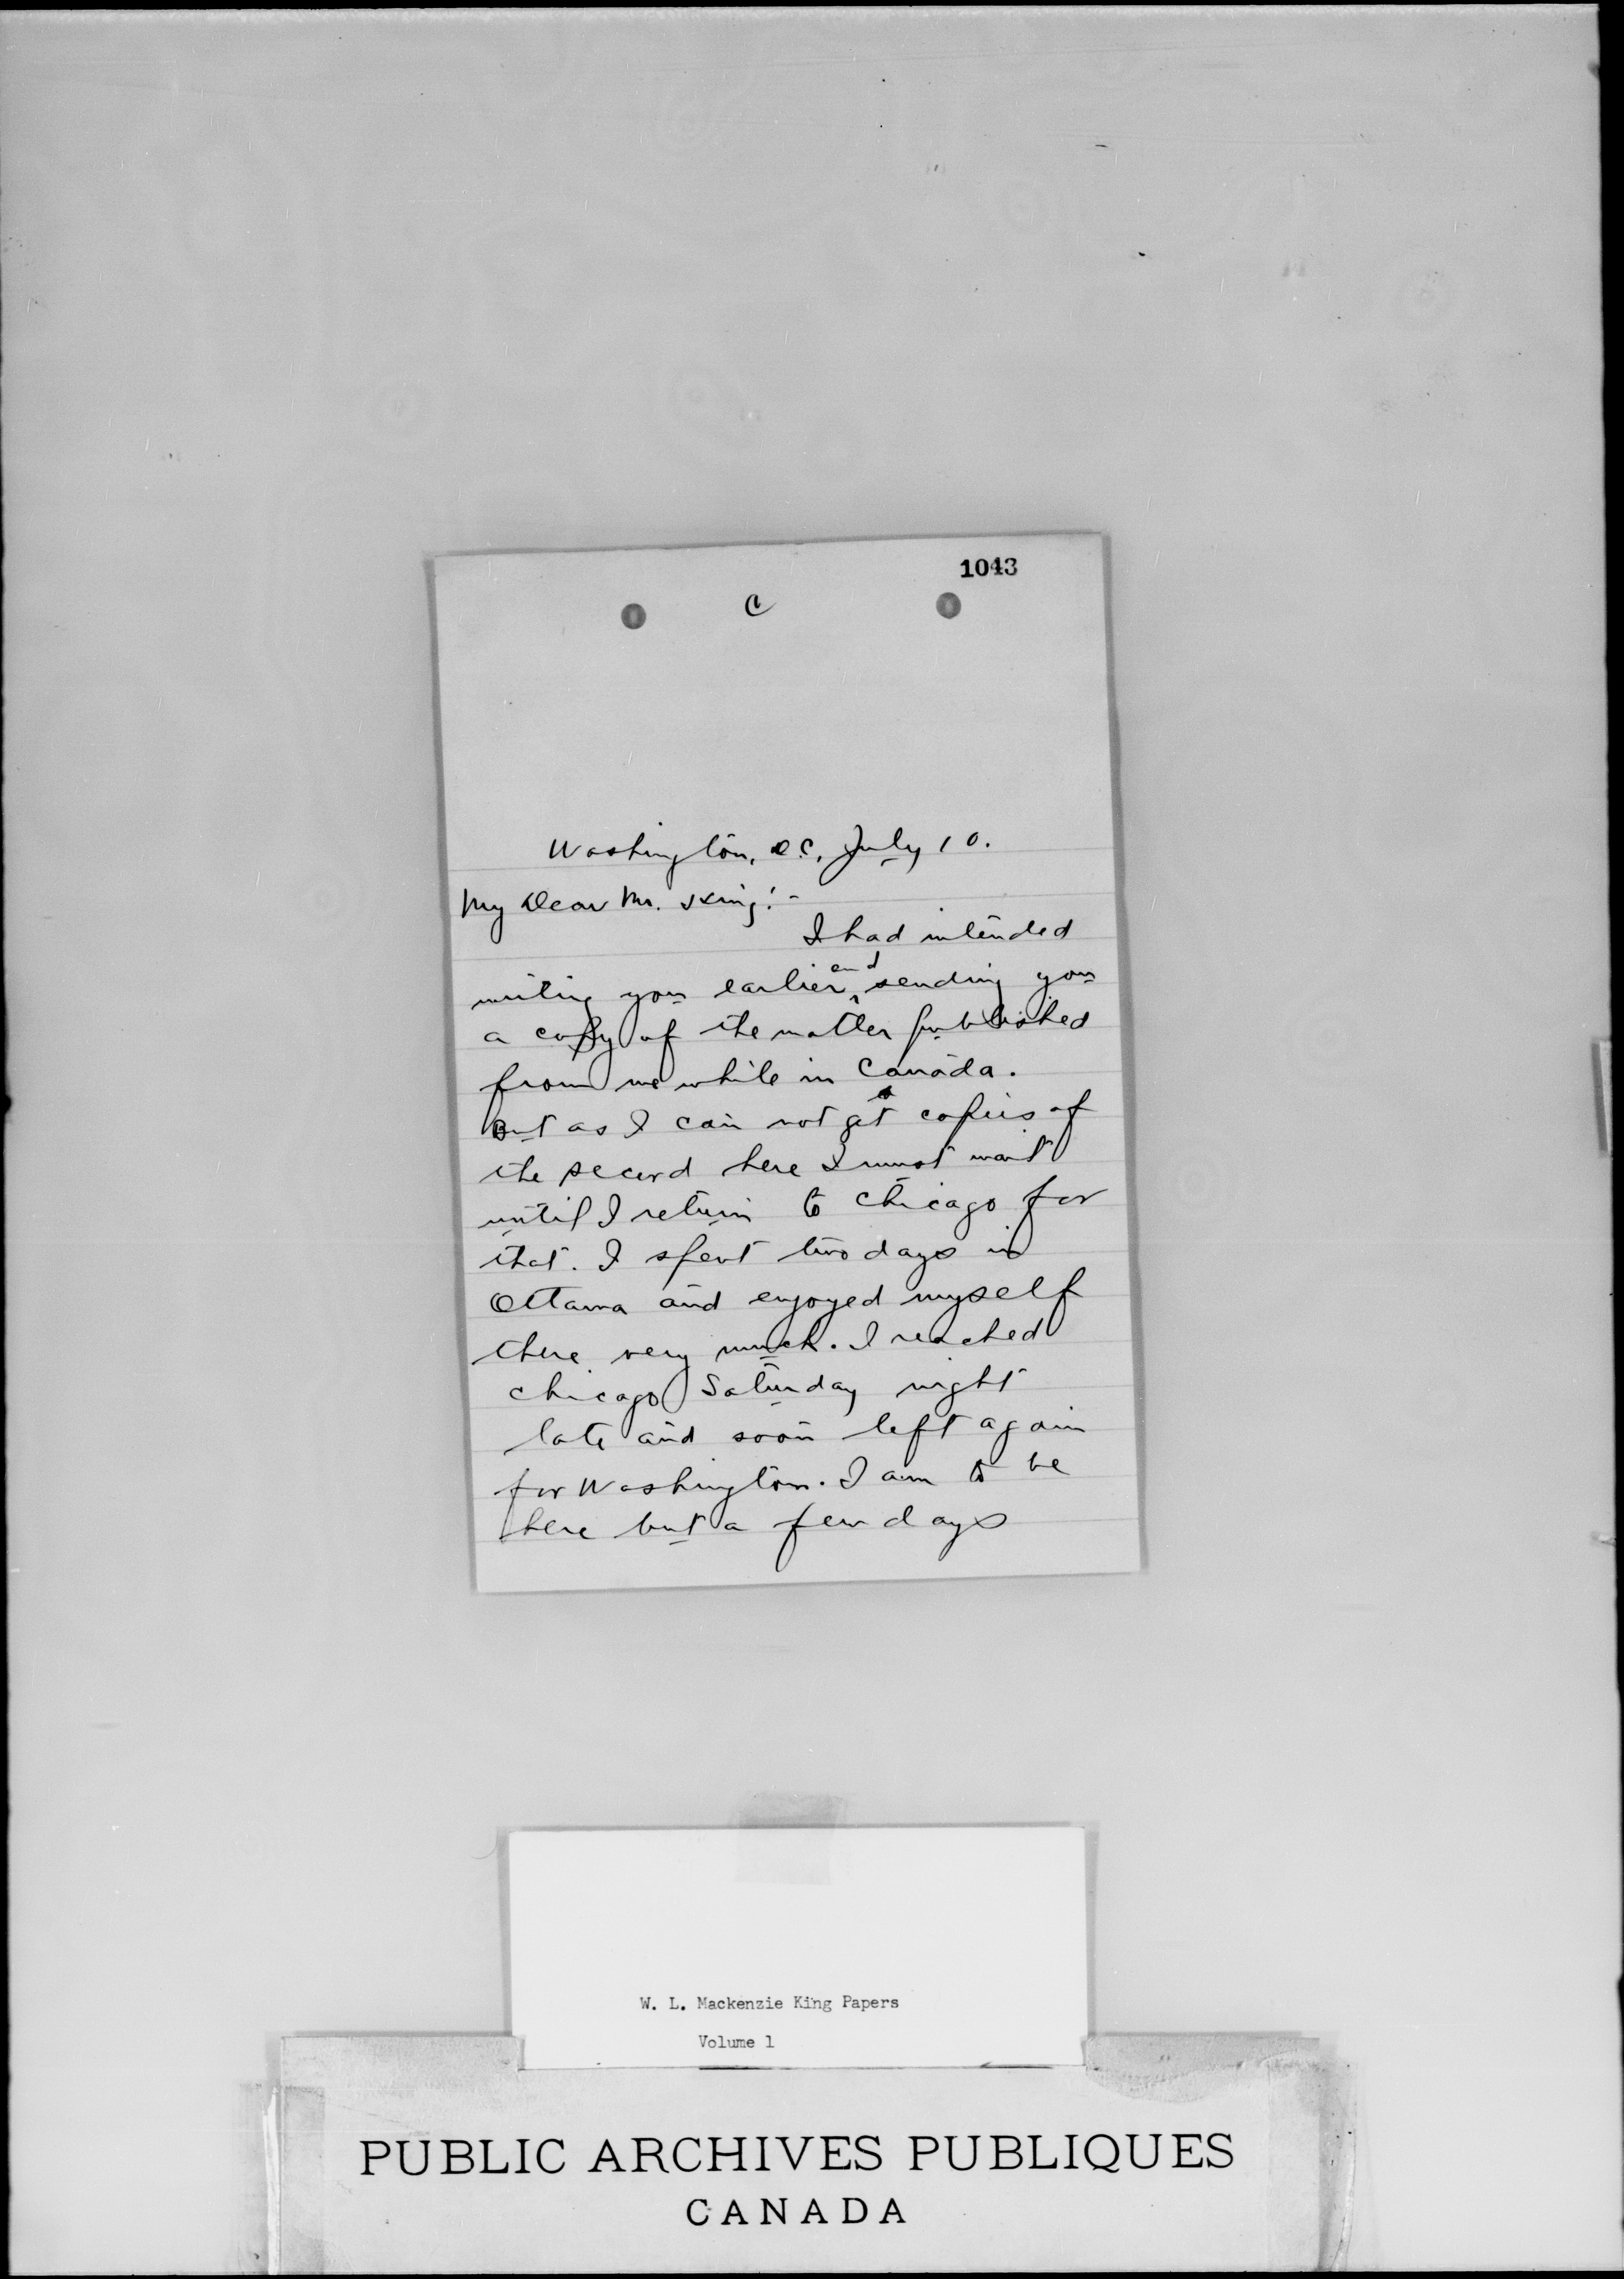 1043
C
Washington, D.C., July 10.
My Dear Mr. King:-
I had intended
and
writing you earlier ^ sending you
a copy of the matter published
from me while in Canada.
But as I can not get copies of
the Record here I must wait
until I return to Chicago for
that. I spent two days in
Ottawa and enjoyed myself
there very much. I reached
Chicago Saturday night
late and soon left again
for Washington. I am to be
here but a few days
W. L. Mackenzie King Papers
Volume 1
PUBLIC ARCHIVES PUBLIQUES
CANADA